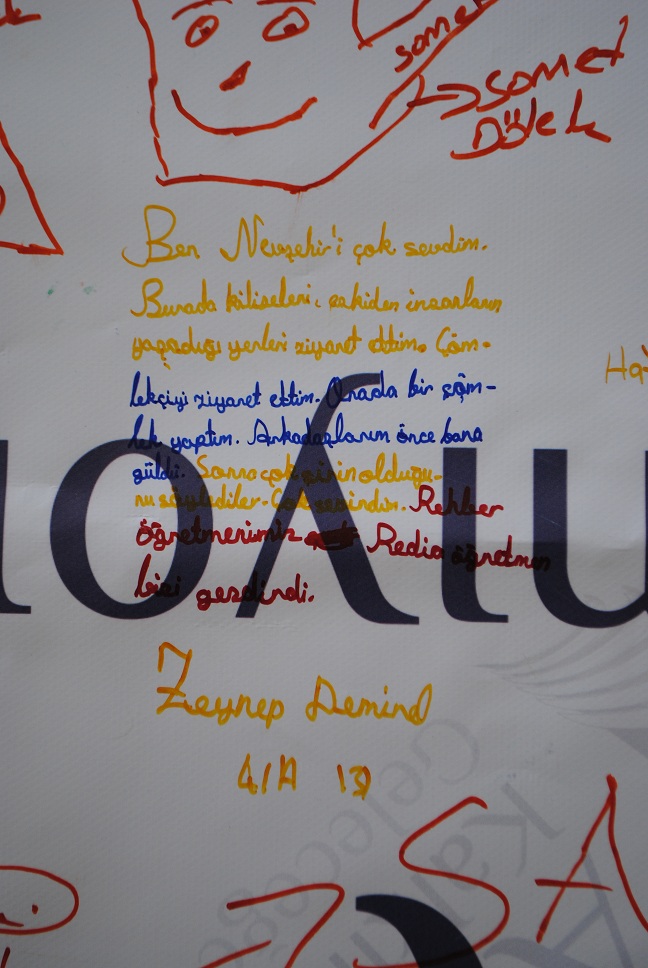 samet
samet
Dölek
Ben Nevşehir'i çok sevdim.
Burada kiliseleri, eskiden insanların
yaşadığı yerleri ziyaret ettim. Çöm-
lekçiyi ziyaret ettim. Orada bir çöm-
lek yaptım. Arkadaşlarım önce bana
güldü. Sonra çok şirin olduğu-
nu söylediler. Çok sevindim. Rehber
öğretmenimiz Redia öğretmen
bizi gezdirdi.
Zeynep
4/A
SA